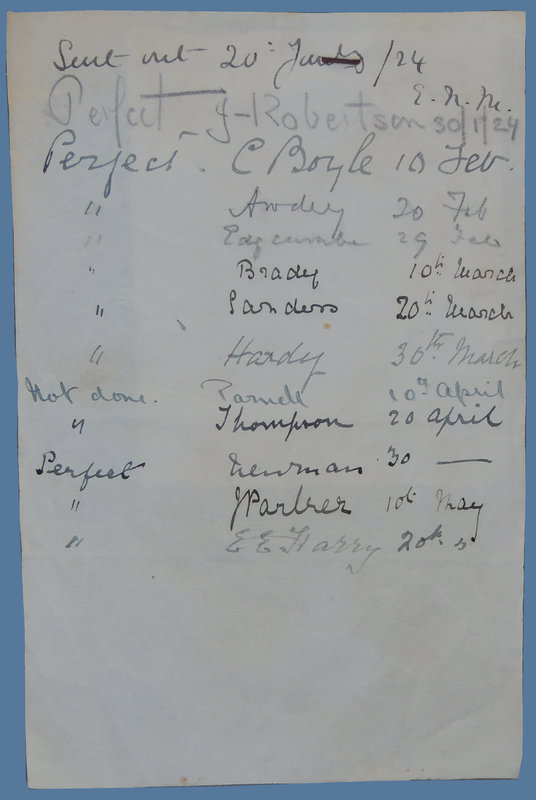 Sent out 20th /24
E. N. M.
Perfect J-Robertson 30/1/24
Perfect - C Boyle 10 Feb.
" Awdry 20 Feb
" Edgcumbe 29 Feb
" Brady 10th March
" Sanders 20th March
" Hardy 30th March
Not done. Parnell 10th April
" Thompson 20 April
Perfect Newman 30 —
" J Parker 10th May
" E E Harry 20th "